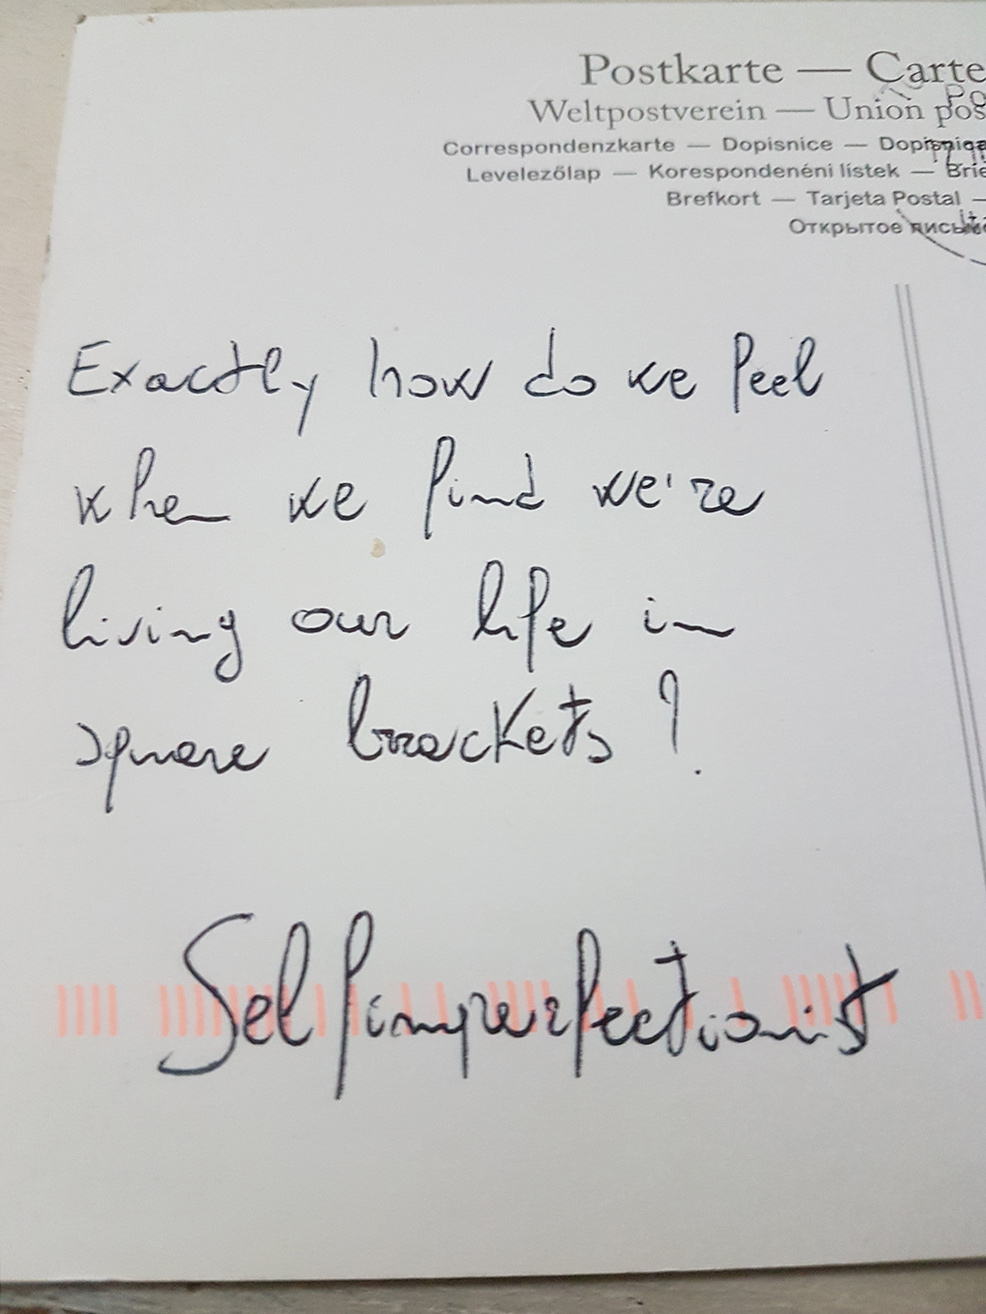 Postkarte — Carte
Weltpostverein — Union pos
Correspondenzkarte — Dopisnice — Dopisnica
Levelezőlap — Korespondenéni lístek — Brie
Brefkort — Tarjeta Postal —
Открытое письмо
Exactly how do we feel
when we find we're
living our life in
square brackets?
Selfimperfectionist